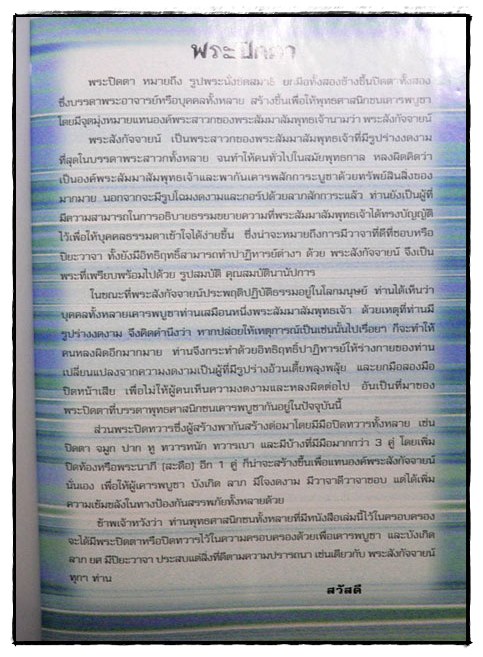 พระปิดตา
พระปิดตา หมายถึง รูปพระนั่งขัดสมาธิ ยกมือทั้งสองข้างขึ้นปิดตาทั้งสอง
ซึ่งบรรดาพระอาจารย์หรือบุคคลทั้งหลาย สร้างขึ้นเพื่อให้พุทธศาสนิกชนเคารพบูชา
โดยมีจุดมุ่งหมายแทนองค์พระสาวกของพระสัมมาสัมพุทธเจ้านามว่า พระสังกัจจายน์
พระสังกัจจายน์ เป็นพระสาวกของพระสัมมาสัมพุทธเจ้าที่มีรูปร่างงดงาม
ที่สุดในบรรดาพระสาวกทั้งหลาย จนทำให้คนทั่วไปในสมัยพุทธกาล หลงผิดคิดว่า
เป็นองค์พระสัมมาสัมพุทธเจ้าและพากันเคารพสักการะบูชาด้วยทรัพย์สินสิ่งของ
มากมาย นอกจากจะมีรูปโฉมงดงามและกอร์ปด้วยลาภสักการะแล้ว ท่านยังเป็นผู้ที่
มีความสามารถในการอธิบายธรรมขยายความที่พระสัมมาสัมพุทธเจ้าได้ทรงบัญญัติ
ไว้เพื่อให้บุคคลธรรมดาเข้าใจได้ง่ายขึ้น ซึ่งน่าจะหมายถึงการมีวาจาที่ดีที่ชอบหรือ
ปิยะวาจา ทั้งยังมีอิทธิฤทธิ์สามารถทำปาฏิหารย์ต่างๆ ด้วย พระสังกัจจายน์ จึงเป็น
พระที่เพรียบพร้อมไปด้วย รูปสมบัติ คุณสมบัตินานัปการ
ในขณะที่พระสังกัจจายน์ประพฤติปฏิบัติธรรมอยู่ในโลกมนุษย์ ท่านได้เห็นว่า
บุคคลทั้งหลายเคารพบูชาท่านเสมือนหนึ่งพระสัมมาสัมพุทธเจ้า ด้วยเหตุที่ท่านมี
รูปร่างงดงาม จึงคิดคำนึงว่า หากปล่อยให้เหตุการณ์เป็นเช่นนั้นไปเรื่อยๆ ก็จะทำให้
คนหลงผิดอีกมากมาย ท่านจึงกระทำด้วยอิทธิฤทธิ์ปาฏิหารย์ให้ร่างกายของท่าน
เปลี่ยนแปลงจากความงดงามเป็นผู้ที่มีรูปร่างอ้วนเตี้ยพลุงพลุ้ย และยกมือสองมือ
ปิดหน้าเสีย เพื่อไม่ให้ผู้คนเห็นความงดงามและหลงผิดต่อไป อันเป็นที่มาของ
พระปิดตาที่บรรดาพุทธศาสนิกชนเคารพบูชากันอยู่ในปัจจุบันนี้
ส่วนพระปิดทวารซึ่งผู้สร้างพากันสร้างต่อมาโดยมีมือปิดทวารทั้งหลาย เช่น
ปิดตา จมูก ปาก หู ทวารหนัก ทวารเบา และมีบ้างที่มีมือมากกว่า 3 คู่ โดยเพิ่ม
ปิดท้องหรือพระนาภี (สะดือ) อีก 1 คู่ ก็น่าจะสร้างขึ้นเพื่อแทนองค์พระสังกัจจายน์
นั่นเอง เพื่อให้ผู้เคารพบูชา บังเกิด ลาภ มีโฉมงดงาม มีวาจาดีวาจาชอบ แต่ได้เพิ่ม
ความเข้มขลังในทางป้องกันสรรพภัยทั้งหลายด้วย
ข้าพเจ้าหวังว่า ท่านพุทธศาสนิกชนทั้งหลายที่มีหนังสือเล่มนี้ไว้ในครอบครอง
จะได้มีพระปิดตาหรือปิดทวารไว้ในความครอบครองด้วยเพื่อเคารพบูชา และบังเกิด
ลาภ ยศ มีปิยะวาจา ประสบแต่สิ่งที่ดีตามความปรารถนา เช่นเดียวกับ พระสังกัจจายน์
ทุกๆ ท่าน
สวัสดี